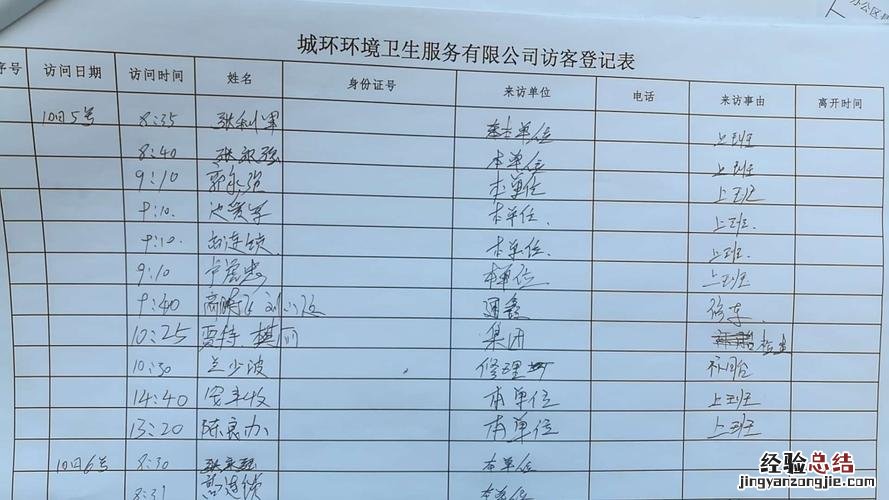 办公区
城环环境卫生服务有限公司访客登记表
序号 访问日期 访问时间 姓名 身份证号 来访单位 电话 来访事由 离开时间
10月5号 8:35 张利军 本单位 上班
8:40 张永强 本单位 上班
9:10 郭永强 本单位 上班
9:10. 本单位. 上班.
9:10. 连锁. 本单位. 上班.
9:10 本单位. 上班
9:40 修车.
10:25 贾特. 集团 检查
10:30 兰少波 修理
14:40 安丰收 本单位 上班
13:20 陈良办 本单位 上班
10月6号 8:30 张永强 本单位
8:31 连锁 本单位
经验总结
jingyanzongjie.com